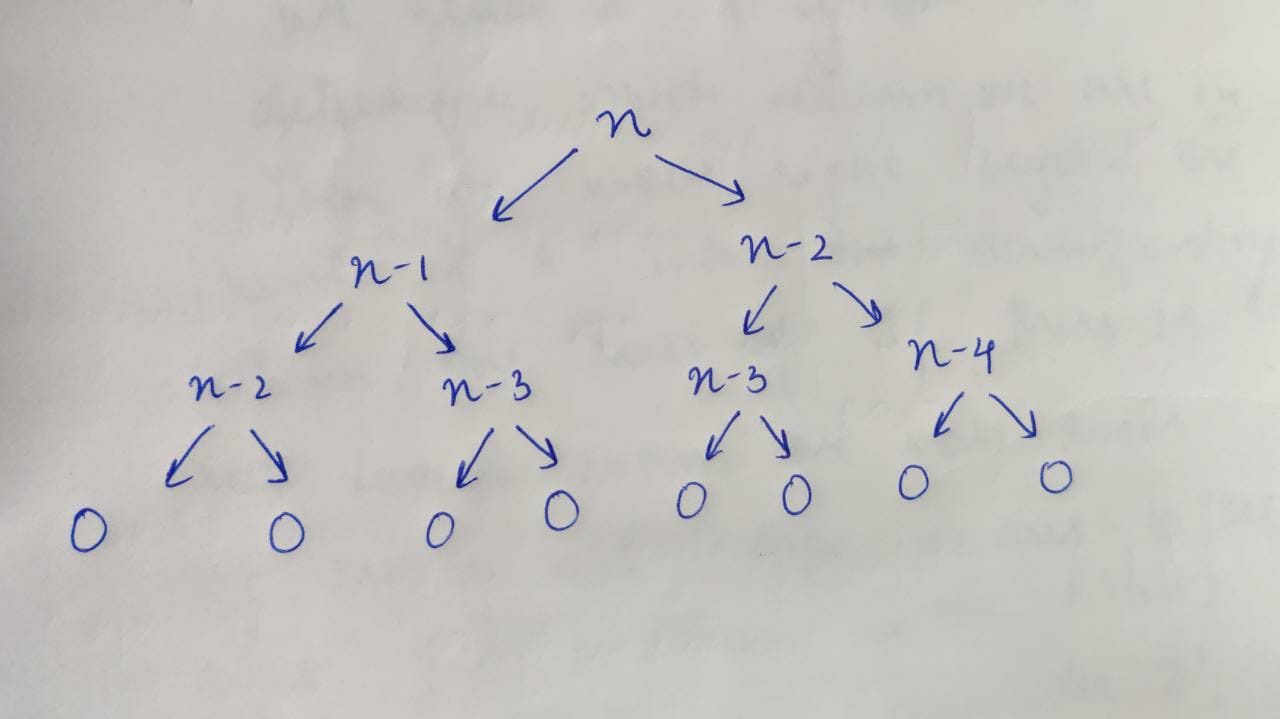 n
n-1 n-2
n-2 n-3 n-3 n-4
0 0 0 0 0 0 0 0